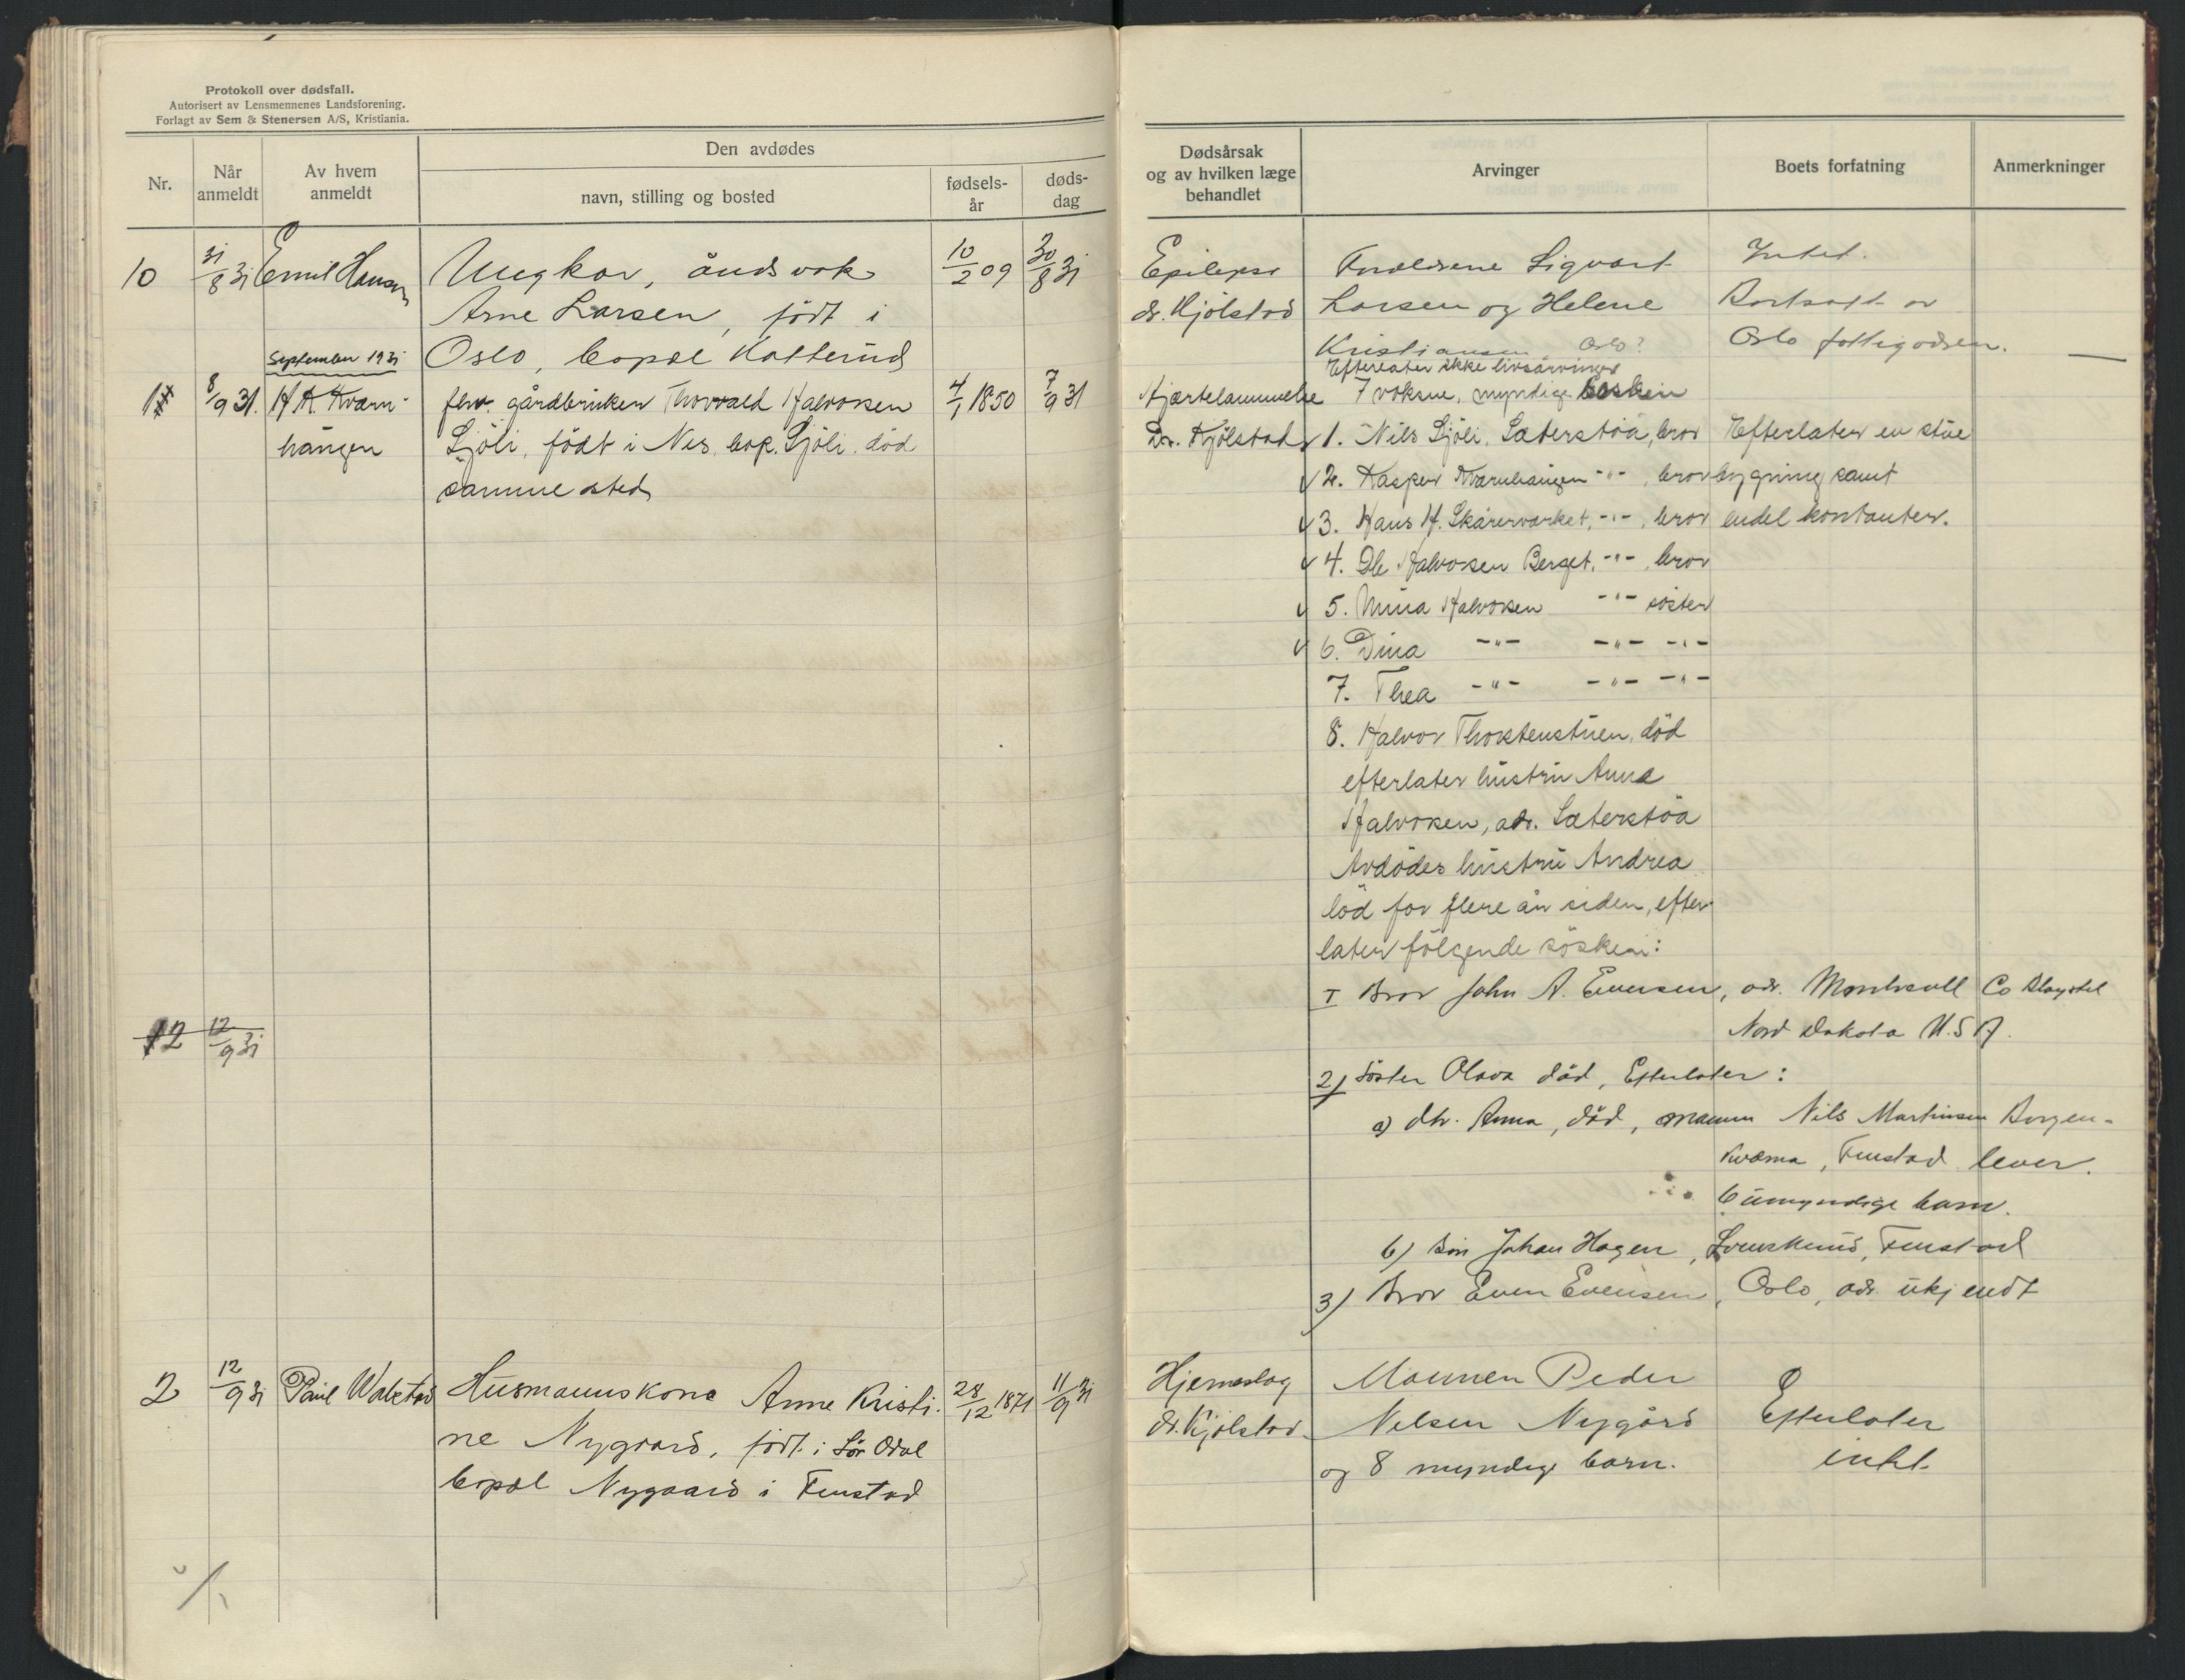 Protokoll over dødsfall.
Autorisert av Lensmennenes Landsforening.
Forlagt av Sem & Stenersen A/S, Kristiania.
Nr.
Når anmeldt
Av hvem anmeldt
Den avdødes
navn, stilling og bosted
fødsels-år
døds-dag
Dødsårsak og av hvilken læge behandlet
Arvinger
Boets forfatning
Anmerkninger
10 31/8 31 Emil Hansen Ungkar, åndsvak 10/2 09 30/8 31
Arne Larsen, født i
Oslo, bopæl Kolterud
Epilepsi
dr. Kjølstad
Foreldrene Sigvart
Larsen og Helene
Kristiansen, Oslo?
Intet.
Bortsatt av
Oslo fattigvesen.
September 1931
1 8/9 31. H K Kværnhangen fhv. gårdbruker Thorvald Halvorsen 4/1 1850 7/9 31
Sjøli, født i Nes, bop. Sjøli, død
samme sted
Hjærtelammelse
Dr. Kjølstad
Efterlater ikke livsarvinger
7 voksne, myndige søsken
1. Nils Sjøli, Sæterstøa, bror
2. Kasper Kværnhangen -"-, bror
3. Hans H. Skårervarket, -"-, bror
4. Ole Halvorsen Berget, -"-, bror
5. Mina Halvorsen -"- søster
6. Dina -"- -"- -"-
7. Thea -"- -"- -"-
8. Halvor Thorstenstuen, død
efterlater hustru Anna
Halvorsen, adr. Sæterstøa
Avdødes hustru Andrea
død for flere år siden, efter
later følgende søsken:
Efterlater en stue
bygning samt
endel kontanter.
I Bror John A. Evensen, adr. Montrall Co
Nord Dakota U.S A.
12 12/9 31
2) Søster Olava død, Efterlater:
a) dtr. Anna, død, mannen Nils Martinsen Borgen-
kværna, Fenstad lever.
6 umyndige barn.
b) søn Johan Hagen, Svenskerud, Fenstad
3) Bror Even Evensen, Oslo, adr. ukjendt
2 12/9 31 Paul Wålstad Husmannskone Anne Kristi- 28/12 1871 11/9 31
ne Nygaard, født i Sør Odal
bopæl Nygaard i Fenstad
Hjerneslag
dr. Kjølstad
Mannen Peder
Nelsen Nygård
og 8 myndige barn.
Efterlater
intet